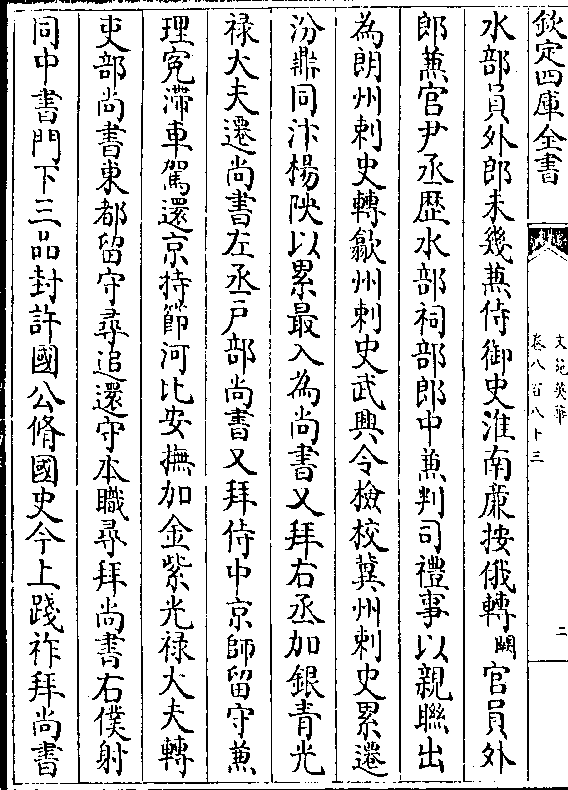 欽定四庫全書
文苑英華
卷八百八十三
二
水部員外郎未幾兼侍御史淮南廉按俄轉闕官員外
郎兼官尹丞歴水部祠部郎中兼判司禮事以親聯出
為朗州刺史轉歙州刺史武興令檢校冀州刺史累遷
汾鼎同汴楊陜以累最入為尚書又拜右丞加銀青光
禄大夫遷尚書左丞戸部尚書又拜侍中京師留守兼
理寃滯車駕還京持節河比安撫加金紫光禄大夫轉
吏部尚書東都留守尋追還守本職尋拜尚書右僕射
同中書門下三品封許國公脩國史今上踐祚拜尚書